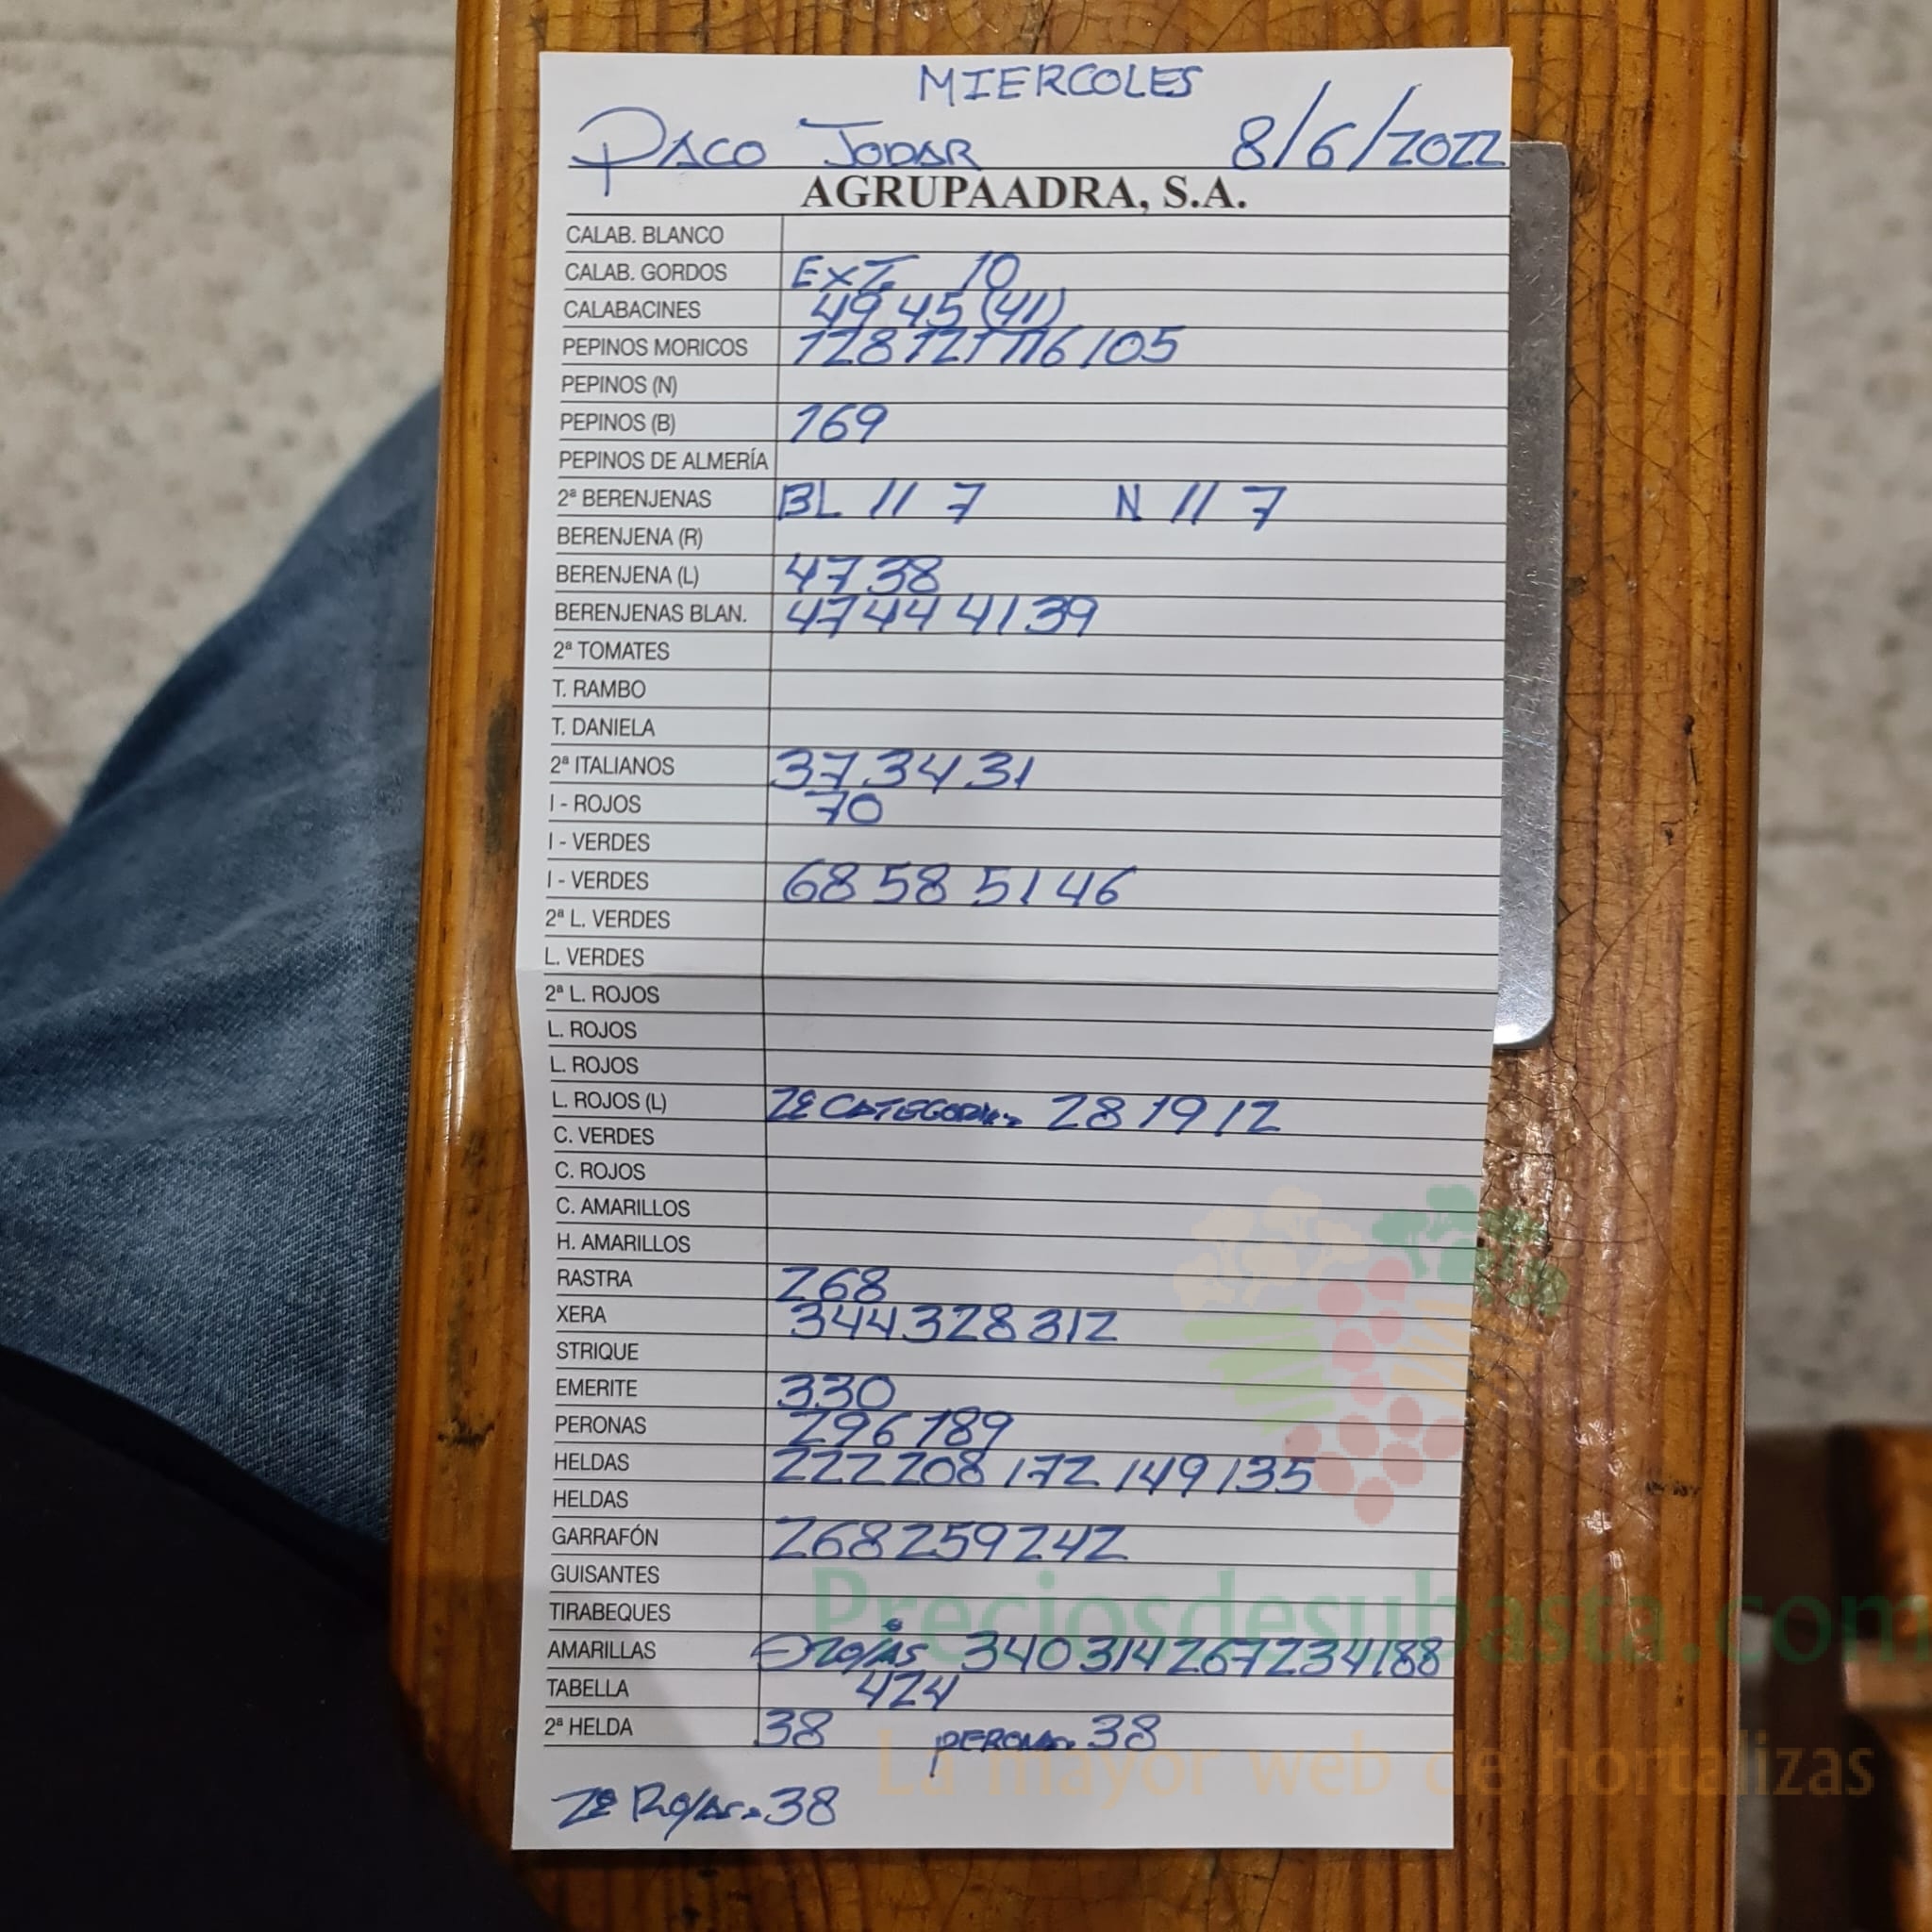 MIERCOLES
PACO JODAR 8/6/2022
AGRUPAADRA, S.A.
CALAB. BLANCO
CALAB. GORDOS EXT. 10
CALABACINES 49 45 (41)
PEPINOS MORICOS 128 121 116 105
PEPINOS (N)
PEPINOS (B) 169
PEPINOS DE ALMERÍA
2ª BERENJENAS BL 11 7 N 11 7
BERENJENA (R)
BERENJENA (L) 47 38
BERENJENAS BLAN. 47 44 41 39
2ª TOMATES
T. RAMBO
T. DANIELA
2ª ITALIANOS 37 34 31
I - ROJOS 70
I - VERDES
I - VERDES 68 58 51 46
2ª L. VERDES
L. VERDES
2ª L. ROJOS
L. ROJOS
L. ROJOS
L. ROJOS (L) 2ª CATEGORIA 28 19 12
C. VERDES
C. ROJOS
C. AMARILLOS
H. AMARILLOS
RASTRA 268
XERA 344 328 312
STRIQUE
EMERITE 330
PERONAS 296 189
HELDAS 222 208 172 149 135
HELDAS
GARRAFÓN 268 259 242
GUISANTES
TIRABEQUES
AMARILLAS ROJAS 340 314 267 234 188
TABELLA 424
2ª HELDA 38 PERONA 38
2ª ROJAS 38
Preciosdesubasta.com
La mayor web de hortalizas